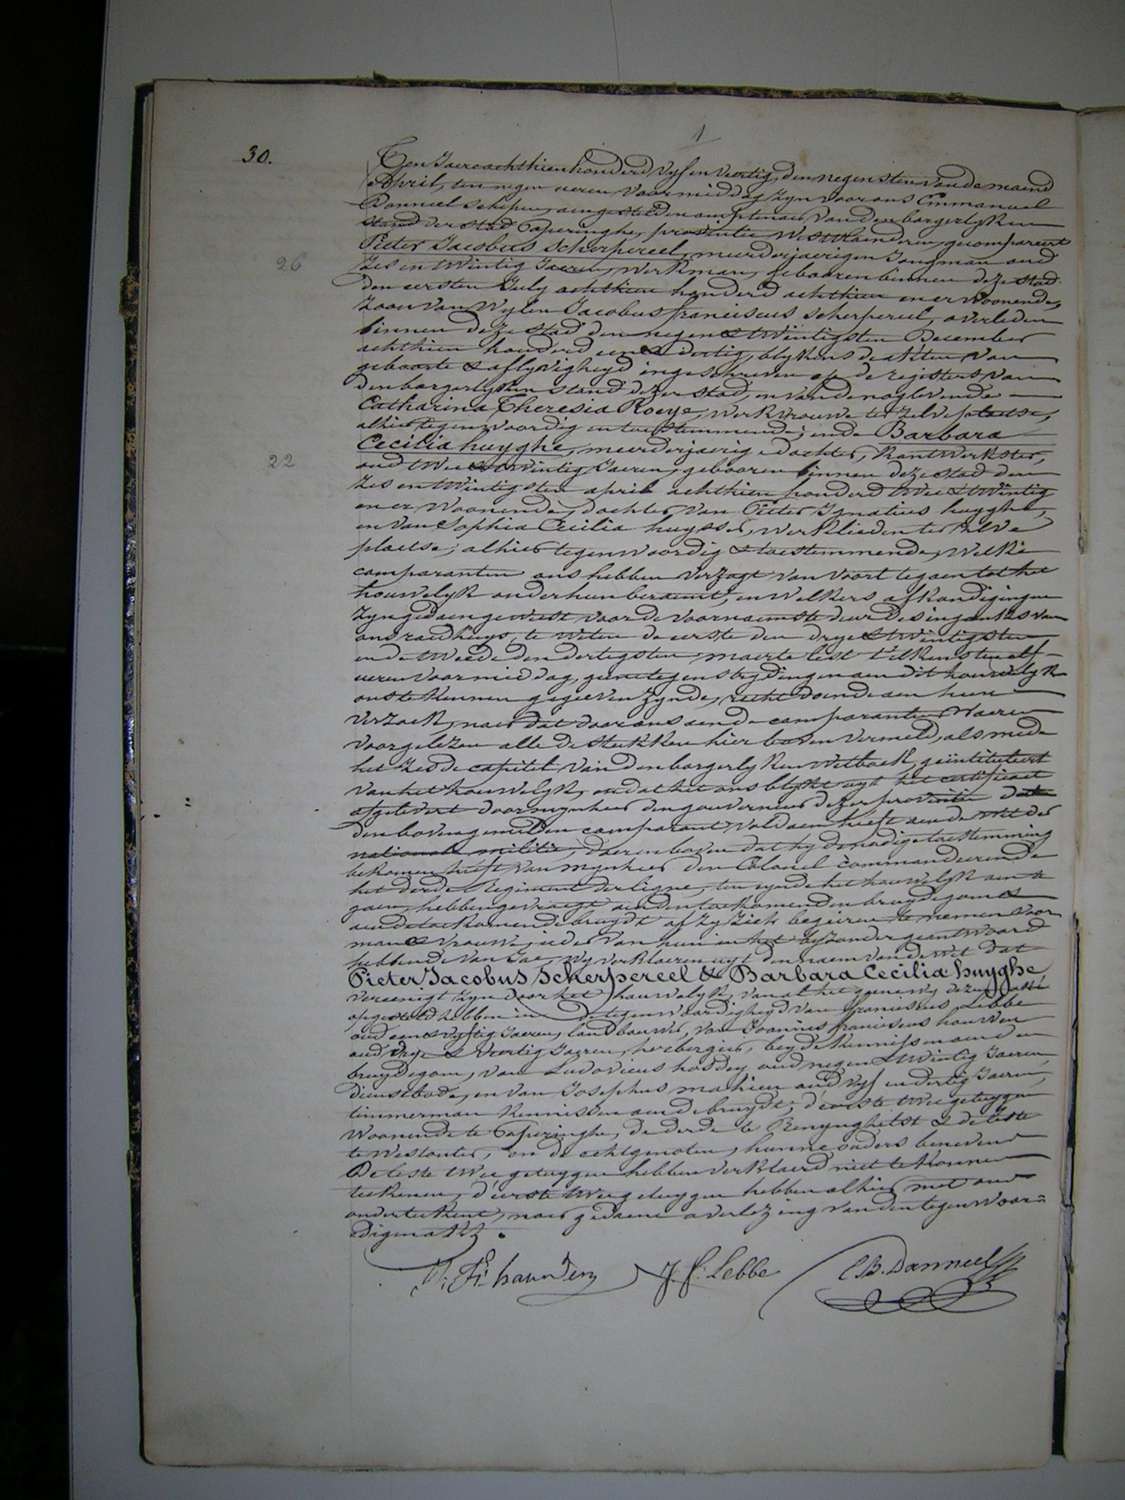 1
30.
Ten Jaere achthien honderd vyf en veertig, den negensten van de maend
April, ten negen ueren voormiddag, zyn voor ons Emmanuel
Danneel Schepen, aengestelden amptenaer van den borgerlyken
stand der stad Poperinghe, provintie Westvlaenderen, gecompareert
Pieter Jacobus Scherpereel, meerderjaerigen Jongman oud
26
zes en twintig Jaeren, werkman, gebooren binnen deze stad
den eersten July achthien honderd achthien en er woonende,
zoon van wylen Jacobus franciscus Scherpereel, overleden
binnen deze stad den negen & twintigsten December
achthien honderd een & dertig, blykens de akten van
geboorte & aflyvigheyd ingeschreven op de registers van
den borgerlyken stand dezer stad, en van de nog levende
Catharina Theresia Roeye, werkvrouwe ter zelve plaetse,
alhier tegenwoordig en toestemmende; ende Barbara
Cecilia huyghe, meerderjaerige dochter, kantwerkster,
22
oud twee & twintig Jaeren, gebooren binnen deze stad den
zes en twintigsten april achthien honderd twee & twintig
en er woonende, dochter van Pieter Ignatius huyghe,
en van Sophia Cecilia huysser, werklieden ter zelve
plaetse; alhier tegenwoordig & toestemmende, welke
comparanten ons hebben verzogt van voort te gaen tot het
houwelyk onder hun beraemt, en welkers afkondigingen
zyn gedaen geweest voor de voornaemste deur des ingangs van
ons raedhuys, te weten de eerste den drye & twintigsten
en de tweede den dertigsten maerte lest t'elkens ten elf
ueren voormiddag, geene tegenstrydingen aen dit houwelyk
ons te kennen gegeven zynde, recht doende aen hun
verzoek, naer dat door ons aen de comparanten waeren
voorgelezen alle de stukken hier boven vermeld, als mede
het zesde capitel van den borgerlyken Wetboek, geïntituleert
van het houwelyk, en dat het ons blykt uyt het certificaet
afgelevert door mynheer den gouverneur dezer provintie dat
den bovengemelden comparant voldaen heeft aen de wet der
nationale militie, daerenboven dat hy de nodige toestemming
bekomen heeft van mynheer den Colonel commandeerende
het derde Regiment der ligne, ten eynde het houwelyk aen te
gaen, hebben gevraegt aen den toekomenden bruydegom &
aen de toekomende bruydt of zy zich begeeren te nemen voor
man & vrouwe, ieder van hun in het byzonder geantwoord
hebbende van Jae, wy verklaeren uyt den naem van de wet dat
Pieter Jacobus Scherpereel & Barbara Cecilia huyghe
vereenigt zyn door het houwelyk, van al het gene wy dezen akte
opgesteld hebben in de tegenwoordigheyd van franciscus Lebbe
oud een & vyftig Jaeren, landbouwer, van Joannes franciscus houwen
oud drye & veertig Jaeren, herbergier, beyde kennissen aen den
bruydegom, van Ludovicus hosdey oud negen & twintig Jaeren,
dienstbode, en van Josephus mahieu oud vyf en dertig Jaeren,
timmerman kennissen aen de bruydt; d'eerste twee getuygen
woonende te Poperinghe, de derde te Renynghelst & de leste
te Westouter, en de echtgenoten, hunne ouders benevens
De leste twee getuygen hebben verklaerd niet te konnen
teekenen, d'eerste twee getuygen hebben alhier met ons
onderteekent, naer gedaene overlezing van den tegenwoor=
digen akte.
J. F. Lebbe
E B. Danneel